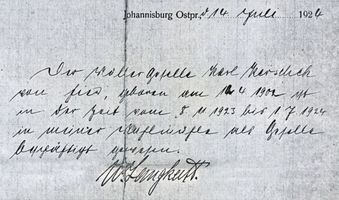 Johannisburg Ostpr., d 14 Juli 1924
Der Müller Geselle Karl
von hier, geboren am 12 4 1902 ist
in der Zeit vom 8 11 1923 bis 1 7 1924
in meiner als Geselle
beschäftigt gewesen.